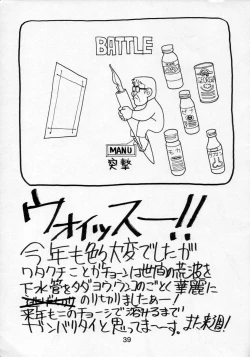 BATTLE
MANU
突撃
ウォイッスー!!
今年も色々大変でしたが
ワタクチことがチョーンは世間の荒波を
下水管をタダヨウウンコのごとく華麗に
のりきりましたぁー!
来年もこのチョーシで溶けるまで
ガンバリタイと思ってまーす。また来週!
39